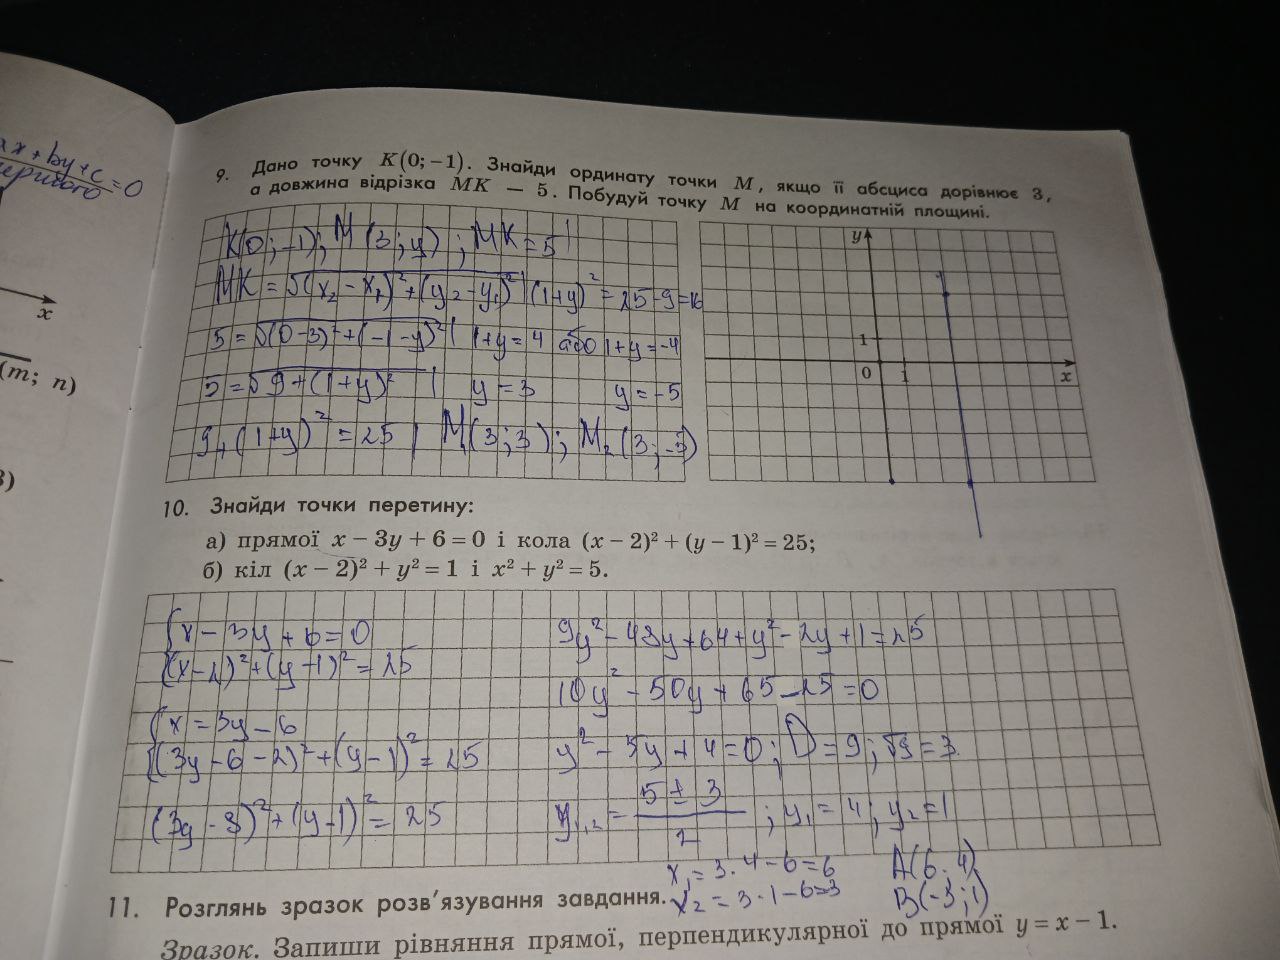 ax + by + c = 0
x
(m; n)
9. Дано точку K(0; −1). Знайди ординату точки M, якщо її абсциса дорівнює 3,
а довжина відрізка MK — 5. Побудуй точку M на координатній площині.
K(0; −1); M(3; y); MK = 5
MK = √((x₂ − x₁)² + (y₂ − y₁)²) | (1+y)² = 25 − 9 = 16
5 = √((0−3)² + (−1−y)²) | 1+y = 4 або 1+y = −4
5 = √(9 + (1+y)²) | y = 3 y = −5
9 + (1+y)² = 25 | M(3; 3); M₂(3; −5)
y
1
0 1 x
10. Знайди точки перетину:
а) прямої x − 3y + 6 = 0 і кола (x − 2)² + (y − 1)² = 25;
б) кіл (x − 2)² + y² = 1 і x² + y² = 5.
{x − 3y + 6 = 0
{(x−2)² + (y−1)² = 25
{x = 3y − 6
{(3y − 6 − 2)² + (y−1)² = 25
(3y − 8)² + (y−1)² = 25
9y² − 48y + 64 + y² − 2y + 1 = 25
10y² − 50y + 65 − 25 = 0
y² − 5y + 4 = 0; D = 9; √9 = 3
y₁,₂ = (5 ± 3)/2; y₁ = 4; y₂ = 1
x₁ = 3·4 − 6 = 6 A(6; 4)
x₂ = 3·1 − 6 = 3 B(−3; 1)
11. Розглянь зразок розв'язування завдання.
Зразок. Запиши рівняння прямої, перпендикулярної до прямої y = x − 1.